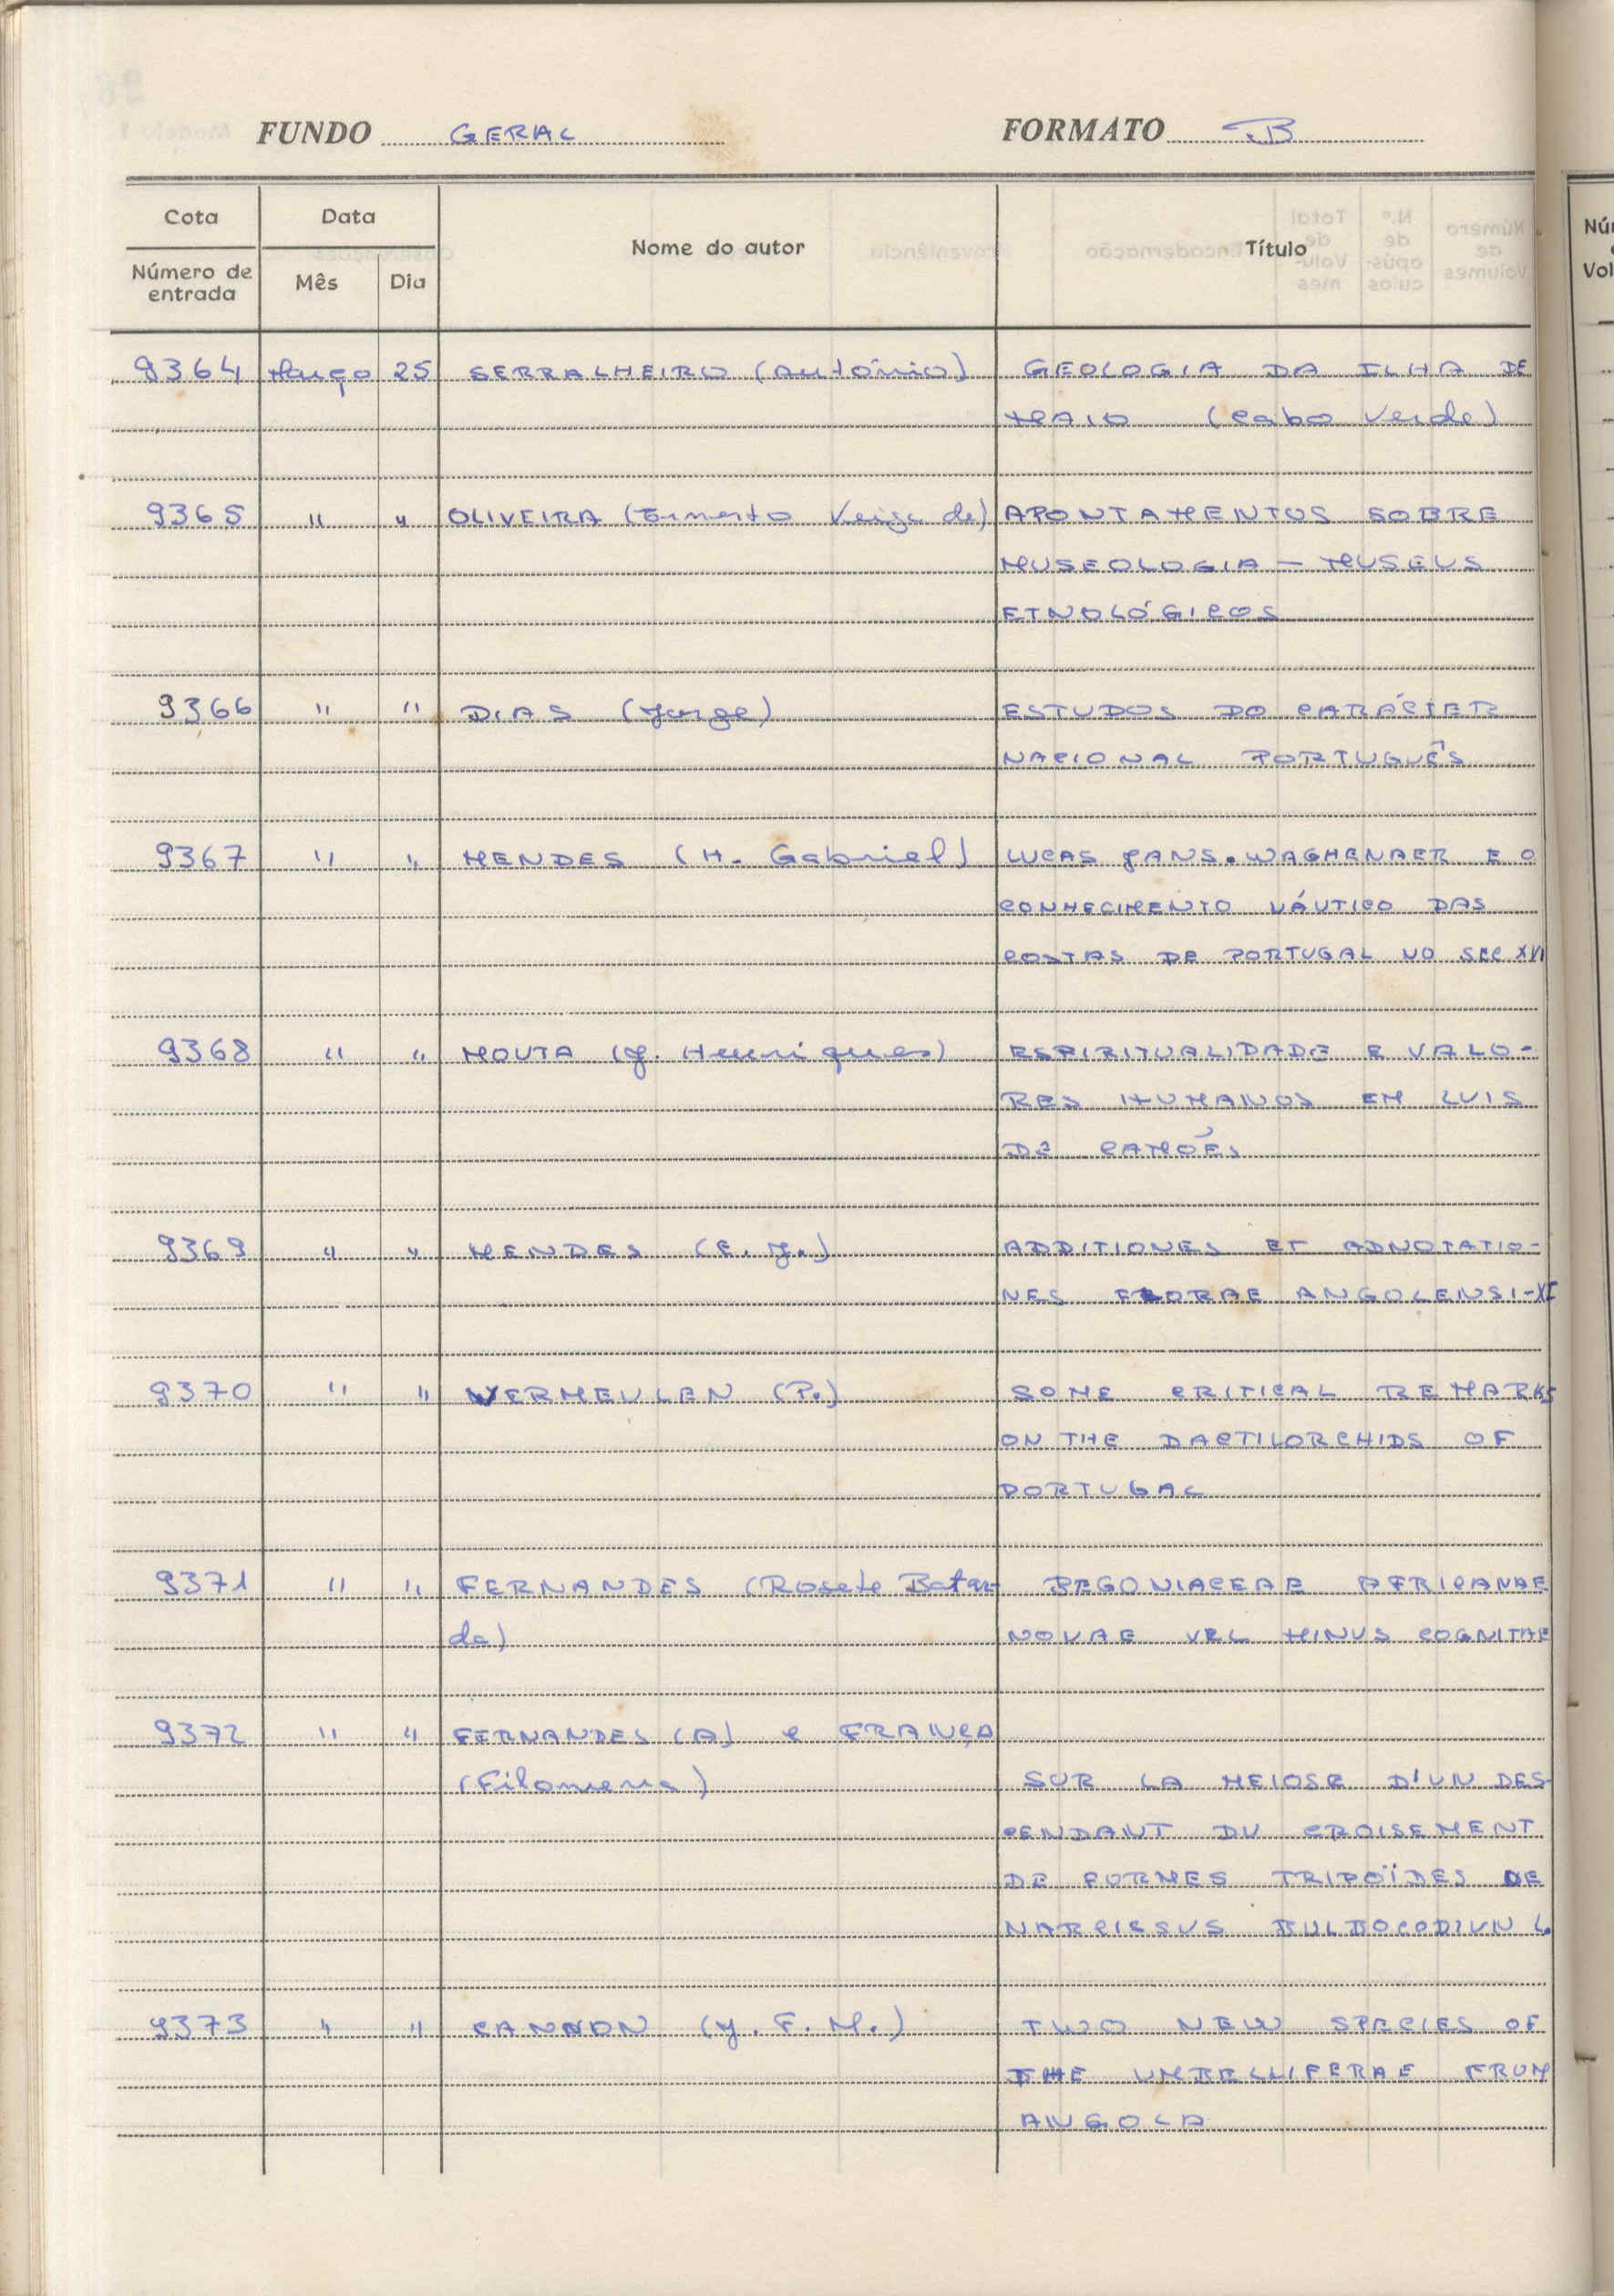 FUNDO GERAL FORMATO B
Cota Data Nome do autor Título
Número de entrada Mês Dia
Nú
Vol
9364 Março 25 SERRALHEIRO (António) GEOLOGIA DA ILHA DE
MAIO (Cabo Verde)
9365 " " OLIVEIRA (Ernesto Veiga de) APONTAMENTOS SOBRE
MUSEOLOGIA — MUSEUS
ETNOLÓGICOS
9366 " " DIAS (Jorge) ESTUDOS DO CARÁCTER
NACIONAL PORTUGUÊS
9367 " " MENDES (H. Gabriel) LUCAS JANS. WAGHENAER E O
CONHECIMENTO NÁUTICO DAS
COSTAS DE PORTUGAL NO SEC XVI
9368 " " MOUTA (J. Henriques) ESPIRITUALIDADE E VALO-
RES HUMANOS EM LUIS
DE CAMÕES
9369 " " MENDES (E. J.) ADDITIONES ET ADNOTATIO-
NES FLORAE ANGOLENSI-XI
9370 " " VERMEULEN (P.) SOME CRITICAL REMARKS
ON THE DACTILORCHIDS OF
PORTUGAL
9371 " " FERNANDES (Rosete Batar- BEGONIACEAE AFRICANAE
da) NOVAE VEL MINUS COGNITAE
9372 " " FERNANDES (A) e FRANÇA
(Filomena) SUR LA MEIOSE D'UN DES-
CENDANT DU CROISEMENT
DE FORMES TRIPOÏDES DE
NARCISSUS BULBOCODIUN L.
9373 " " CANNON (J. F. M.) TWO NEW SPECIES OF
THE UMBELLIFERAE FROM
ANGOLA